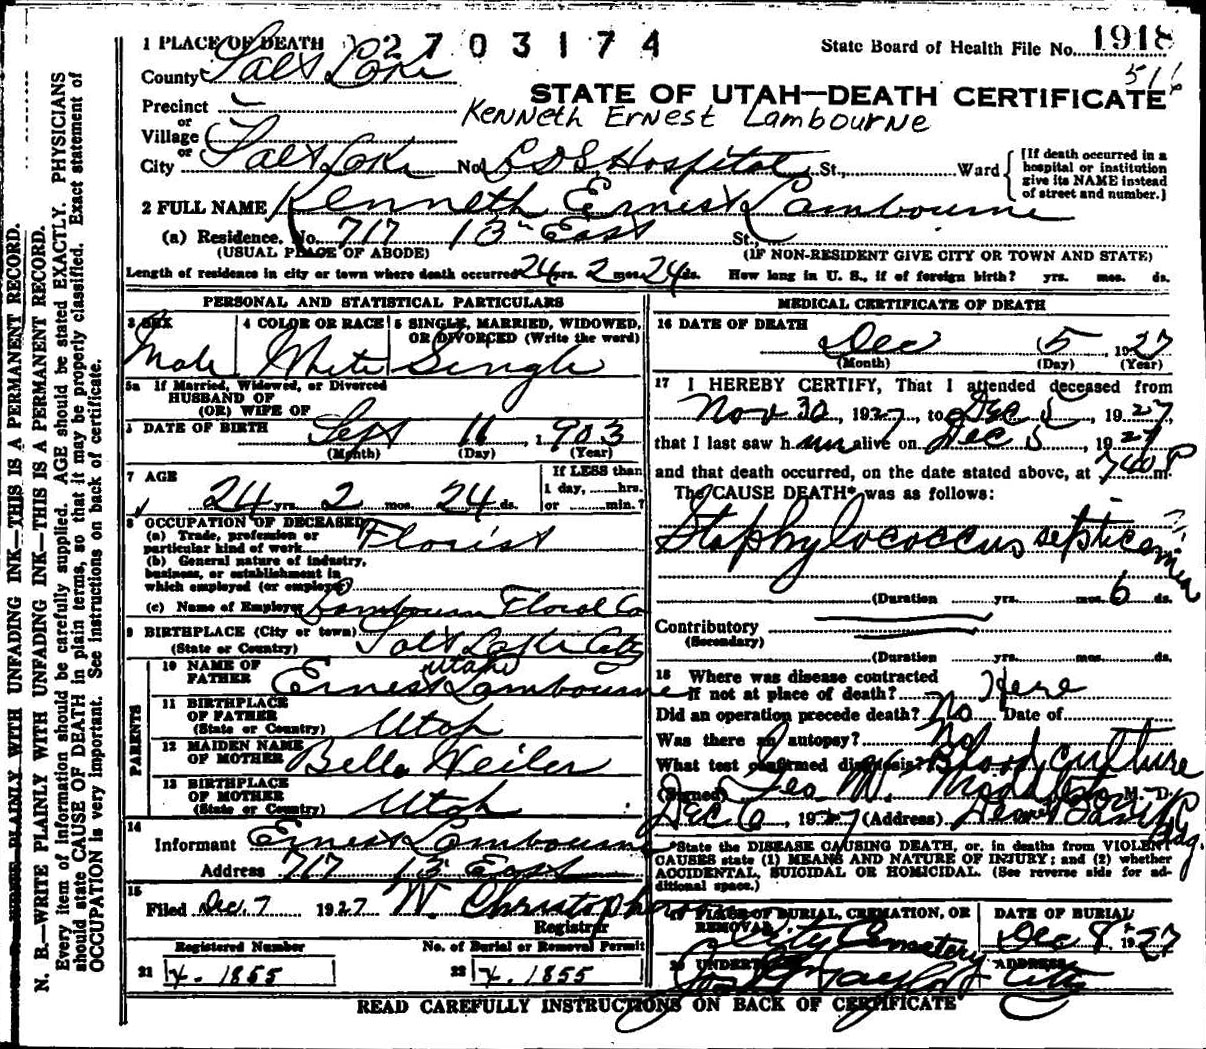 1 PLACE OF DEATH 2703174 State Board of Health File No. 1918
County Salt Lake 516
STATE OF UTAH—DEATH CERTIFICATE
Precinct
or
Kenneth Ernest Lambourne
Village
or
City Salt Lake No. L D S Hospital St., Ward
[If death occurred in a hospital or institution give its NAME instead of street and number.]
2 FULL NAME Kenneth Ernest Lambourne
(a) Residence. No. 717 13th East St.,
(USUAL PLACE OF ABODE) (IF NON-RESIDENT GIVE CITY OR TOWN AND STATE)
Length of residence in city or town where death occurred 24 yrs. 2 mos. 24 ds. How long in U. S., if of foreign birth? yrs. mos. ds.
PERSONAL AND STATISTICAL PARTICULARS
3 SEX 4 COLOR OR RACE 5 SINGLE, MARRIED, WIDOWED,
OR DIVORCED (Write the word)
Male White Single
5a If Married, Widowed, or Divorced
HUSBAND OF
(OR) WIFE OF
DATE OF BIRTH Sept 11, 1903
(Month) (Day) (Year)
7 AGE If LESS than
1 day, hrs.
24 yrs. 2 mos. 24 ds. or min.?
8 OCCUPATION OF DECEASED
(a) Trade, profession or
particular kind of work Florist
(b) General nature of industry,
business, or establishment in
which employed (or employer)
(c) Name of Employer Lambourn Floral Co
9 BIRTHPLACE (City or town)
(State or Country) Salt Lake City
Utah
PARENTS
10 NAME OF
FATHER Ernest Lambourne
11 BIRTHPLACE
OF FATHER
(State or Country) Utah
12 MAIDEN NAME
OF MOTHER Bella Weiler
13 BIRTHPLACE
OF MOTHER
(State or Country) Utah
14
Informant Ernest Lambourne
Address 717 13 East
15
Filed Dec. 7 1927 W. Christopherson
Registrar
Registered Number No. of Burial or Removal Permit
21 X. 1855 22 X. 1855
MEDICAL CERTIFICATE OF DEATH
16 DATE OF DEATH
Dec 5, 1927
(Month) (Day) (Year)
17 I HEREBY CERTIFY, That I attended deceased from
Nov 30, 1927, to Dec 5, 1927
that I last saw him alive on Dec 5, 1927
and that death occurred, on the date stated above, at 740 P m.
The CAUSE DEATH* was as follows:
Staphylococcus septicemia
(Duration yrs. mos. 6 ds.
Contributory
(Secondary)
(Duration yrs. mos. ds.
18 Where was disease contracted
If not at place of death? Here
Did an operation precede death? No Date of
Was there an autopsy? No
What test confirmed diagnosis? Blood culture
(Signed) Geo W. M. D.
Dec 6, 1927 (Address)
*State the DISEASE CAUSING DEATH, or, in deaths from VIOLENT
CAUSES state (1) MEANS AND NATURE OF INJURY; and (2) whether
ACCIDENTAL, SUICIDAL OR HOMICIDAL. (See reverse side for ad-
ditional space.)
19 PLACE OF BURIAL, CREMATION, OR
REMOVAL DATE OF BURIAL
City Cemetery Dec 8, 1927
20 UNDERTAKER ADDRESS
Taylor City
READ CAREFULLY INSTRUCTIONS ON BACK OF CERTIFICATE
N. B.—WRITE PLAINLY WITH UNFADING INK—THIS IS A PERMANENT RECORD.
N. B.—WRITE PLAINLY WITH UNFADING INK—THIS IS A PERMANENT RECORD.
Every item of information should be carefully supplied. AGE should be stated EXACTLY. PHYSICIANS
should state CAUSE OF DEATH in plain terms, so that it may be properly classified. Exact statement of
OCCUPATION is very important. See instructions on back of certificate.